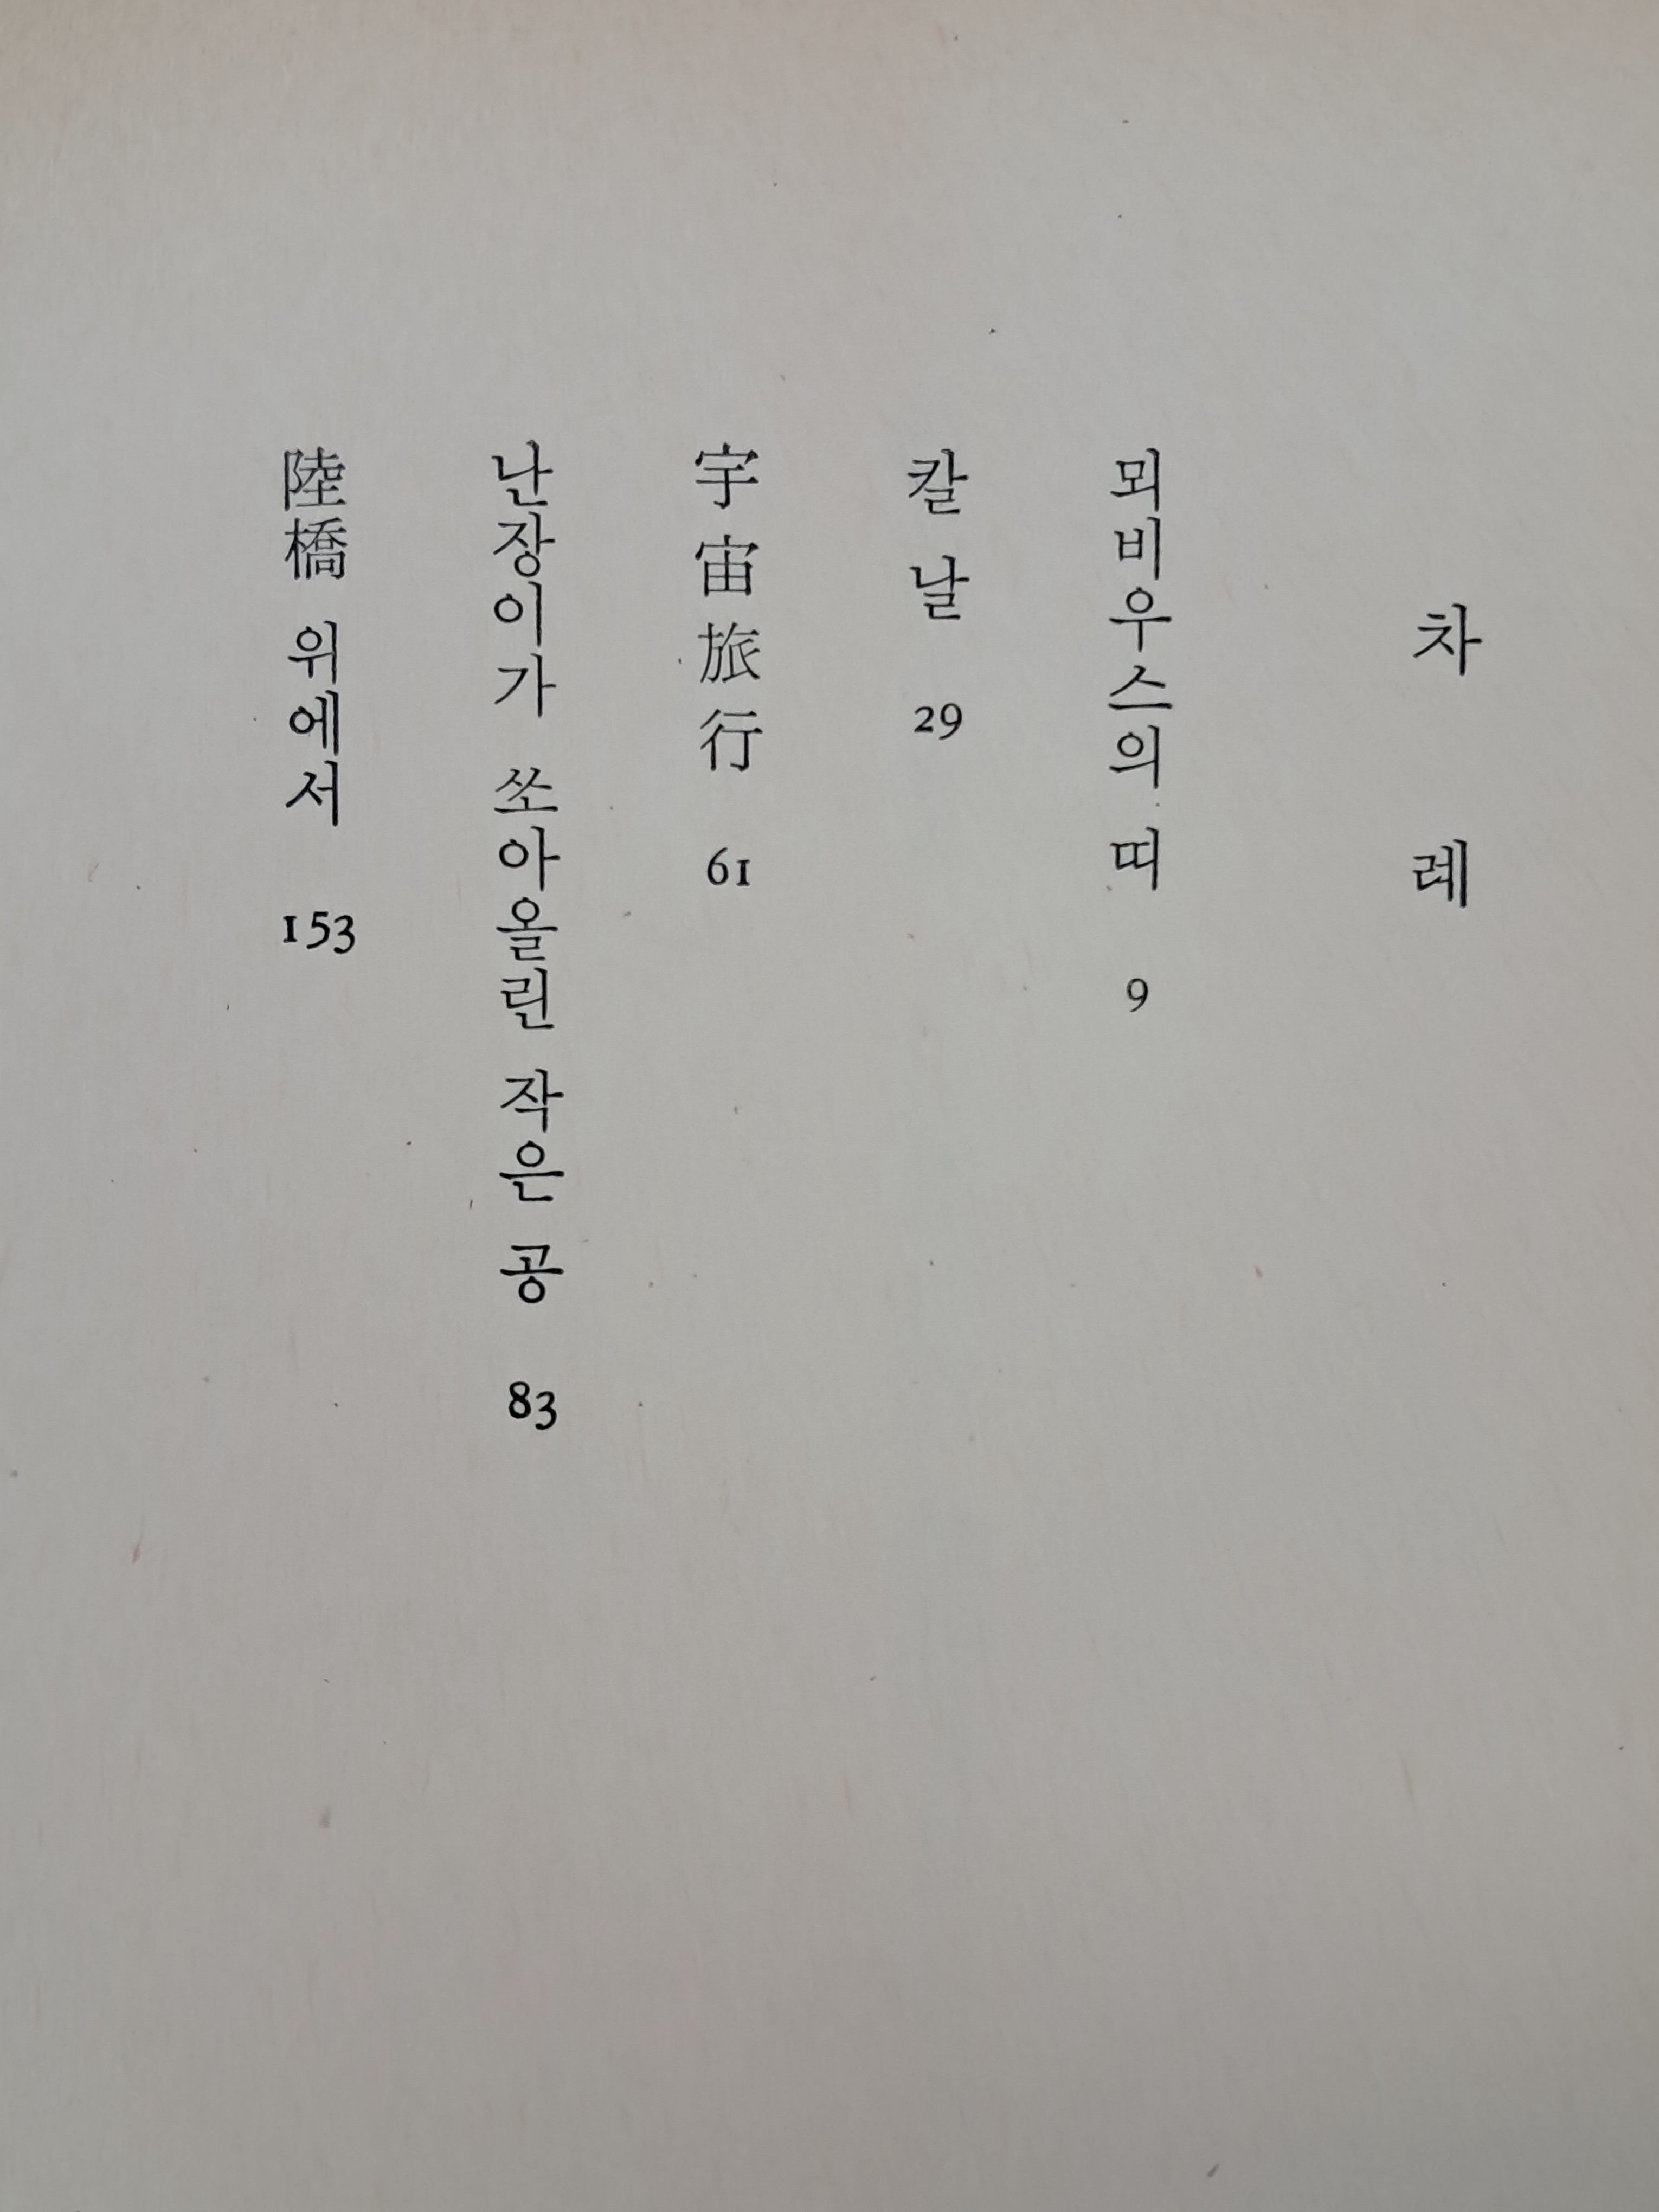 차 례
뫼비우스의 띠 9
칼 날 29
宇宙旅行 61
난장이가 쏘아올린 작은 공 83
陸橋 위에서 153